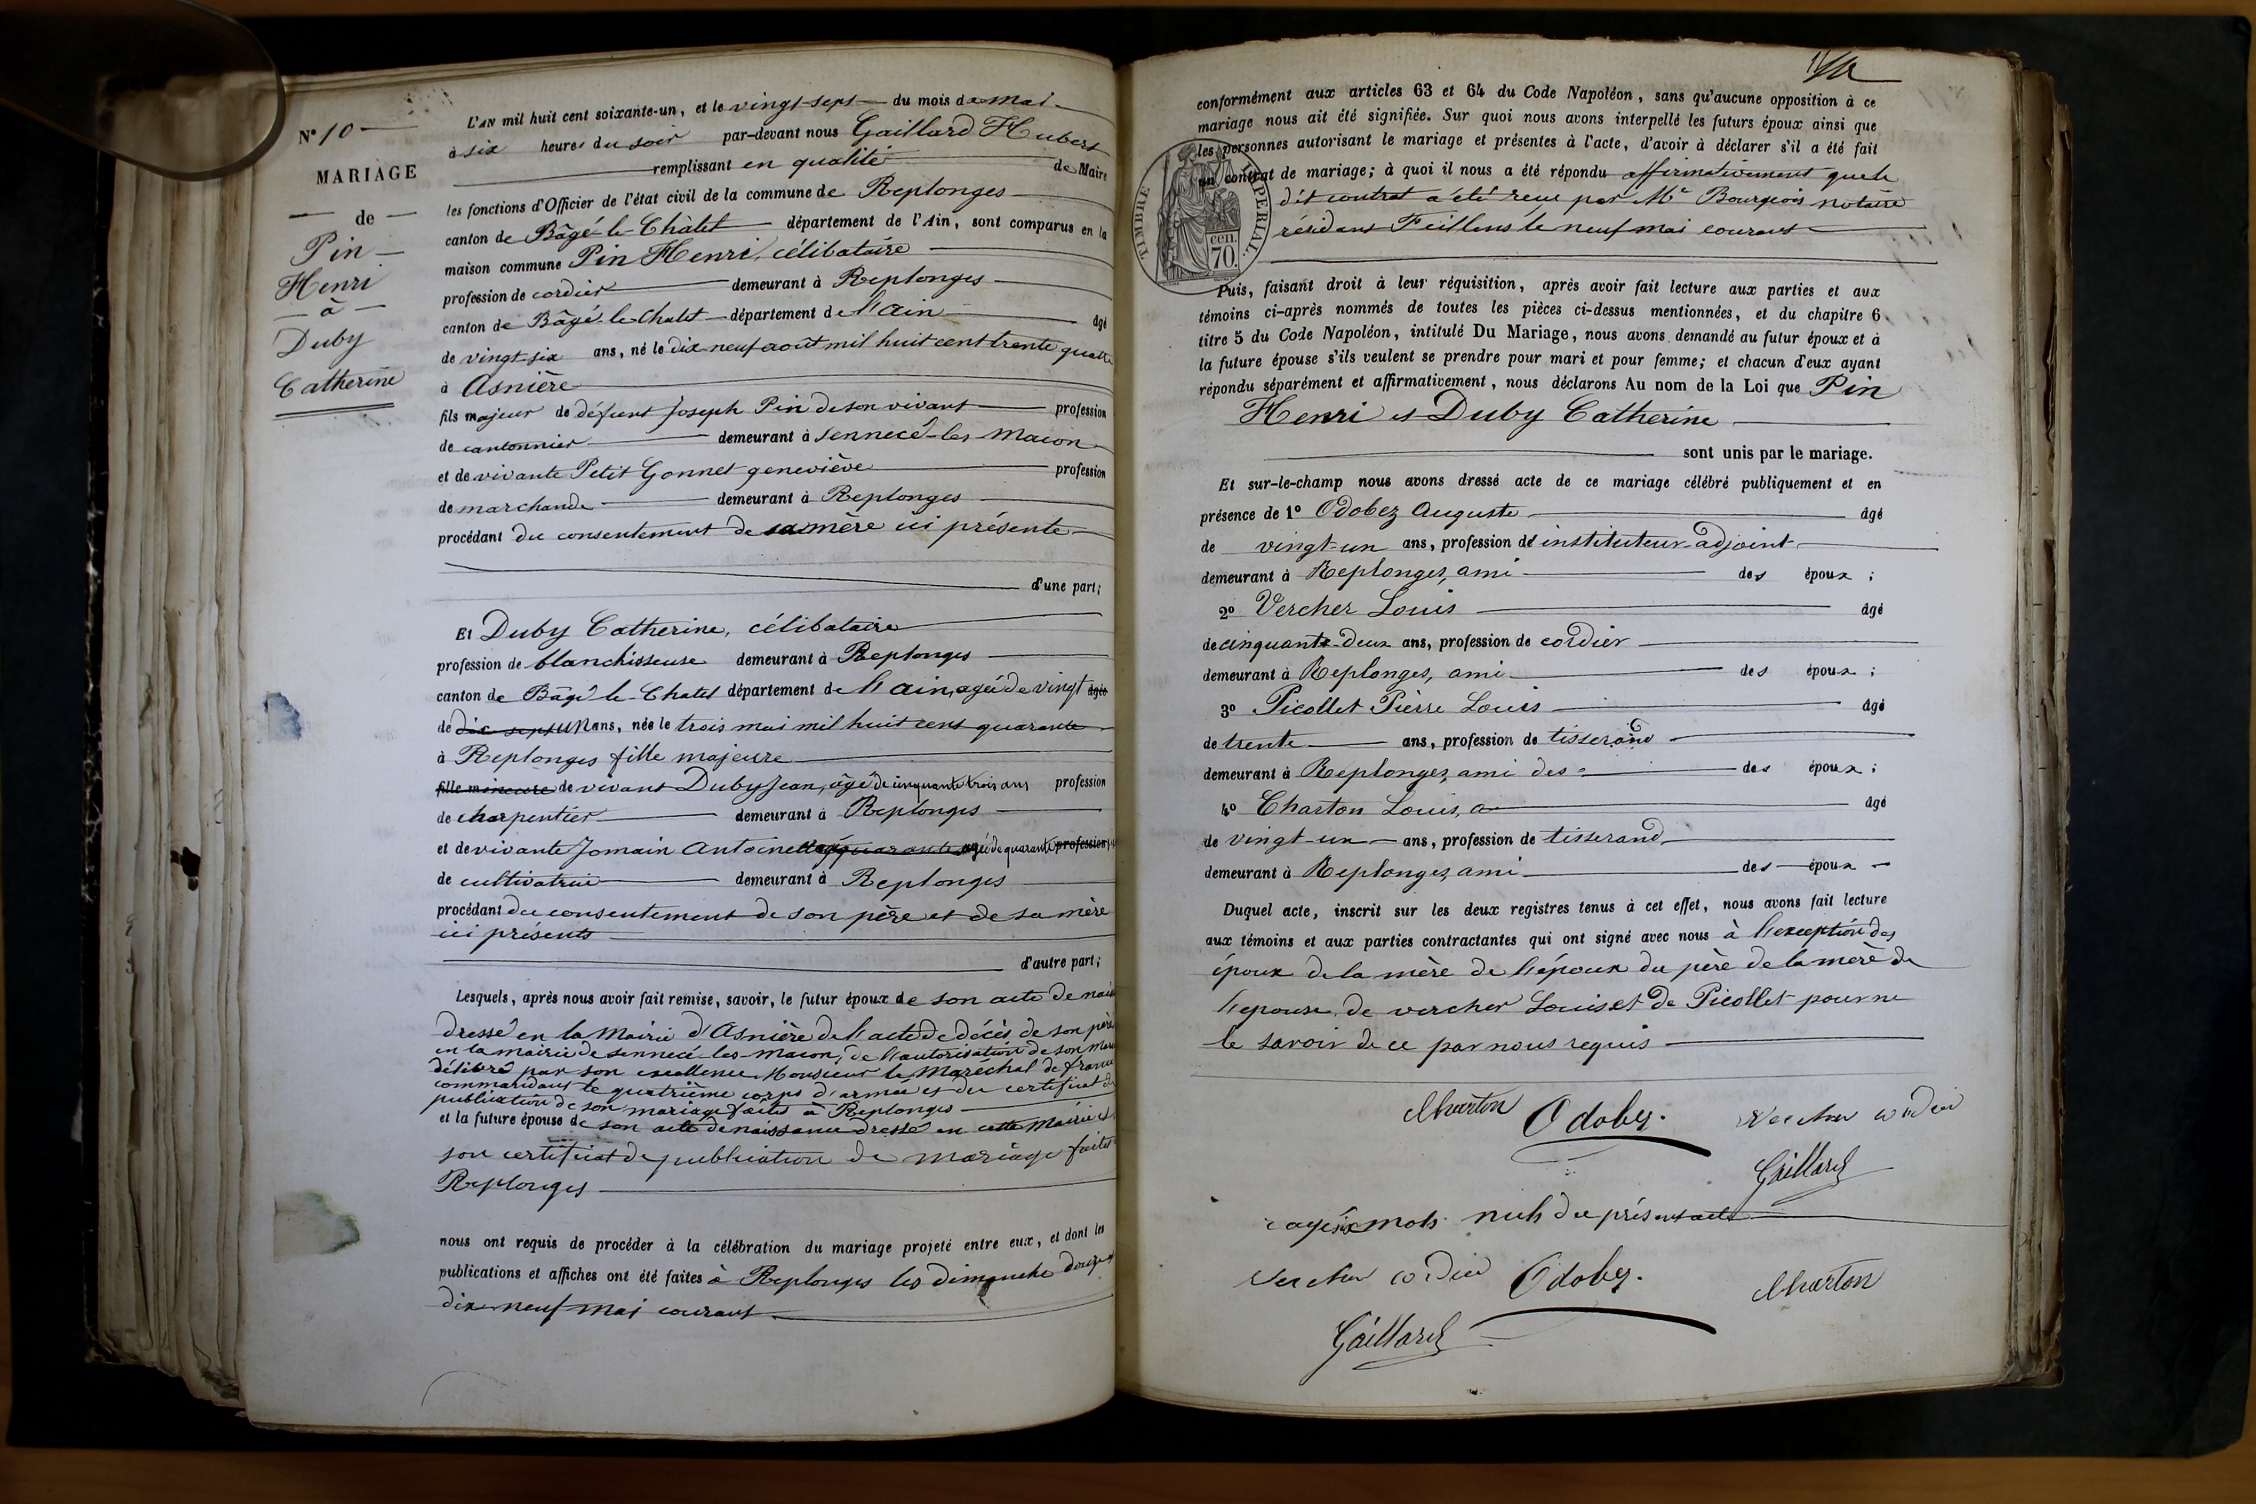 N° 10
MARIAGE
de
Pin
Henri
à
Duby
Catherine
L'AN mil huit cent soixante-un, et le vingt-sept du mois de mai
à six heures du soir par-devant nous Gaillard Hubert
remplissant en qualité de Maire
les fonctions d'Officier de l'état civil de la commune de Replonges
canton de Bâgé-le-Châtel département de l'Ain, sont comparus en la
maison commune Pin Henri, célibataire
profession de cordier demeurant à Replonges
canton de Bâgé-le-Chatel département de l'ain âgé
de vingt-six ans, né le dix neuf août mil huit cent trente quatre
à Asnière
fils majeur de défunt Joseph Pin de son vivant profession
de cantonnier demeurant à Sennecé-les-Macon
et de vivante Petit Gonnet geneviève profession
de marchande demeurant à Replonges
procédant du consentement de sa mère ici présente
d'une part;
Et Duby Catherine, célibataire
profession de blanchisseuse demeurant à Replonges
canton de Bâgé-le-Chatel département de l'ain, agée de vingt âgée
de dix sept un ans, née le trois mai mil huit cent quarante
à Replonges fille majeure
fille mineure de vivant Duby Jean, âgé de cinquante trois ans profession
de charpentier demeurant à Replonges
et de vivante Jomain Antoinette agée de quarante profession
de cultivatrice demeurant à Replonges
procédant du consentement de son père et de sa mère
ici présents
d'autre part;
Lesquels, après nous avoir fait remise, savoir, le futur époux de son acte de nais
dressé en la Mairie d'Asnière de l'acte de décès de son père
en la mairie de Sennecé-les-macon, de l'autorisation de son
délibré par son excellence Monsieur le Maréchal de france
commandant le quatrième corps d'armée et du certificat de
publication de son mariage faite à Replonges
et la future épouse de son acte de naissance dressé en cette Mairie et
son certificat de publication de mariage faites
Replonges
nous ont requis de procéder à la célébration du mariage projeté entre eux, et dont les
publications et affiches ont été faites à Replonges les dimanche douze et
dix-neuf mai courant
conformément aux articles 63 et 64 du Code Napoléon, sans qu'aucune opposition à ce
mariage nous ait été signifiée. Sur quoi nous avons interpellé les futurs époux ainsi que
les personnes autorisant le mariage et présentes à l'acte, d'avoir à déclarer s'il a été fait
un contrat de mariage; à quoi il nous a été répondu affirmativement que le
dit contrat a été reçu par Me Bourgeois notaire
résidant Feillens le neuf mai courant
TIMBRE IMPERIAL
70 cen.
Puis, faisant droit à leur réquisition, après avoir fait lecture aux parties et aux
témoins ci-après nommés de toutes les pièces ci-dessus mentionnées, et du chapitre 6
titre 5 du Code Napoléon, intitulé Du Mariage, nous avons demandé au futur époux et à
la future épouse s'ils veulent se prendre pour mari et pour femme; et chacun d'eux ayant
répondu séparément et affirmativement, nous déclarons Au nom de la Loi que Pin
Henri et Duby Catherine
sont unis par le mariage.
Et sur-le-champ nous avons dressé acte de ce mariage célébré publiquement et en
présence de 1° Odobez Auguste âgé
de vingt-un ans, profession de instituteur-adjoint
demeurant à Replonges, ami des époux;
2° Vercher Louis âgé
de cinquante-deux ans, profession de cordier
demeurant à Replonges, ami des époux;
3° Picollet Pièrre Louis âgé
de trente ans, profession de tisserand
demeurant à Replonges, ami des des époux;
4° Charton Louis, a âgé
de vingt-un ans, profession de tisserand
demeurant à Replonges, ami des époux
Duquel acte, inscrit sur les deux registres tenus à cet effet, nous avons fait lecture
aux témoins et aux parties contractantes qui ont signé avec nous à l'exception des
époux de la mère de l'époux du père de la mère de
l'epouse, de vercher Louis et de Picollet pour ne
le savoir de ce par nous requis
Charton Odobez. Vercher cordier
Gaillard
rayé six mots nuls du présent acte
Vercher cordier Odobez. Charton
Gaillard